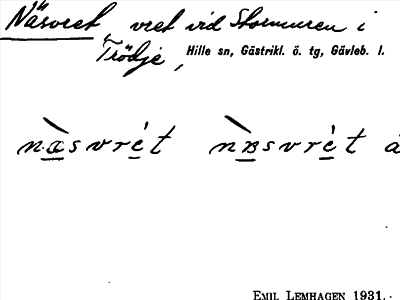 Näsvret, vret vid Stormuren i
Trödje, Hille sn, Gästrikl. ö. tg, Gävleb. l.
EMIL LEMHAGEN 1931.